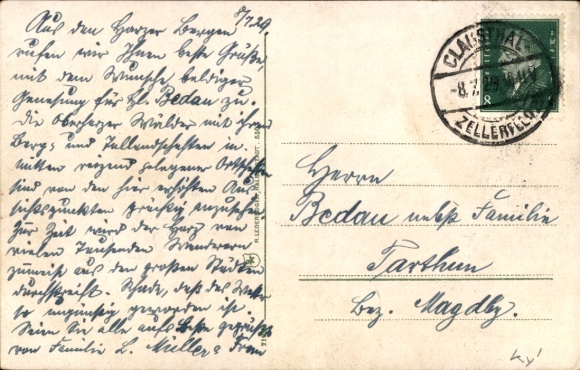 8/7.29.
Aus den Harzer Bergen
rufen wir Ihnen beste Grüße,
mit dem Wunsche baldiger
Genesung für Hl. Bedau zu.
Die Oberharzer Wälder mit ihren
Berg- und Tallandschaften in-
mitten reizend gelegener Ortschaften
sind von den hier erhöhten Aus-
sichtspunkten prächtig anzusehen.
Zur Zeit wird der Harz von
vielen Tausenden Wanderern
zumeist aus den großen Städten
durchstreift. Schade, daß das Wetter
so ungünstig geworden ist.
Seien Sie alle aufs Beste gegrüßt
von Familie L. Müller & Frau
CLAUSTHAL-
-8.7.29
ZELLERFELD
8
Herrn
Bedau nebst Familie
Tarthun
Bez. Magdbg.